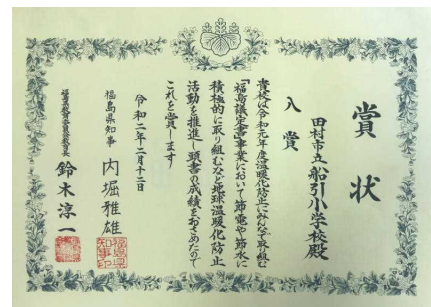 賞状
田村市立船引小学校殿
入賞
貴校は令和元年度温暖化防止にみんなで取り組む
「福島議定書」事業において節電や節水に
積極的に取り組むなど地球温暖化防止
活動を推進し頭書の成績をおさめたので
これを賞します
令和二年二月十二日
福島県知事 内堀雅雄
福島県教育委員会教育長 鈴木淳一